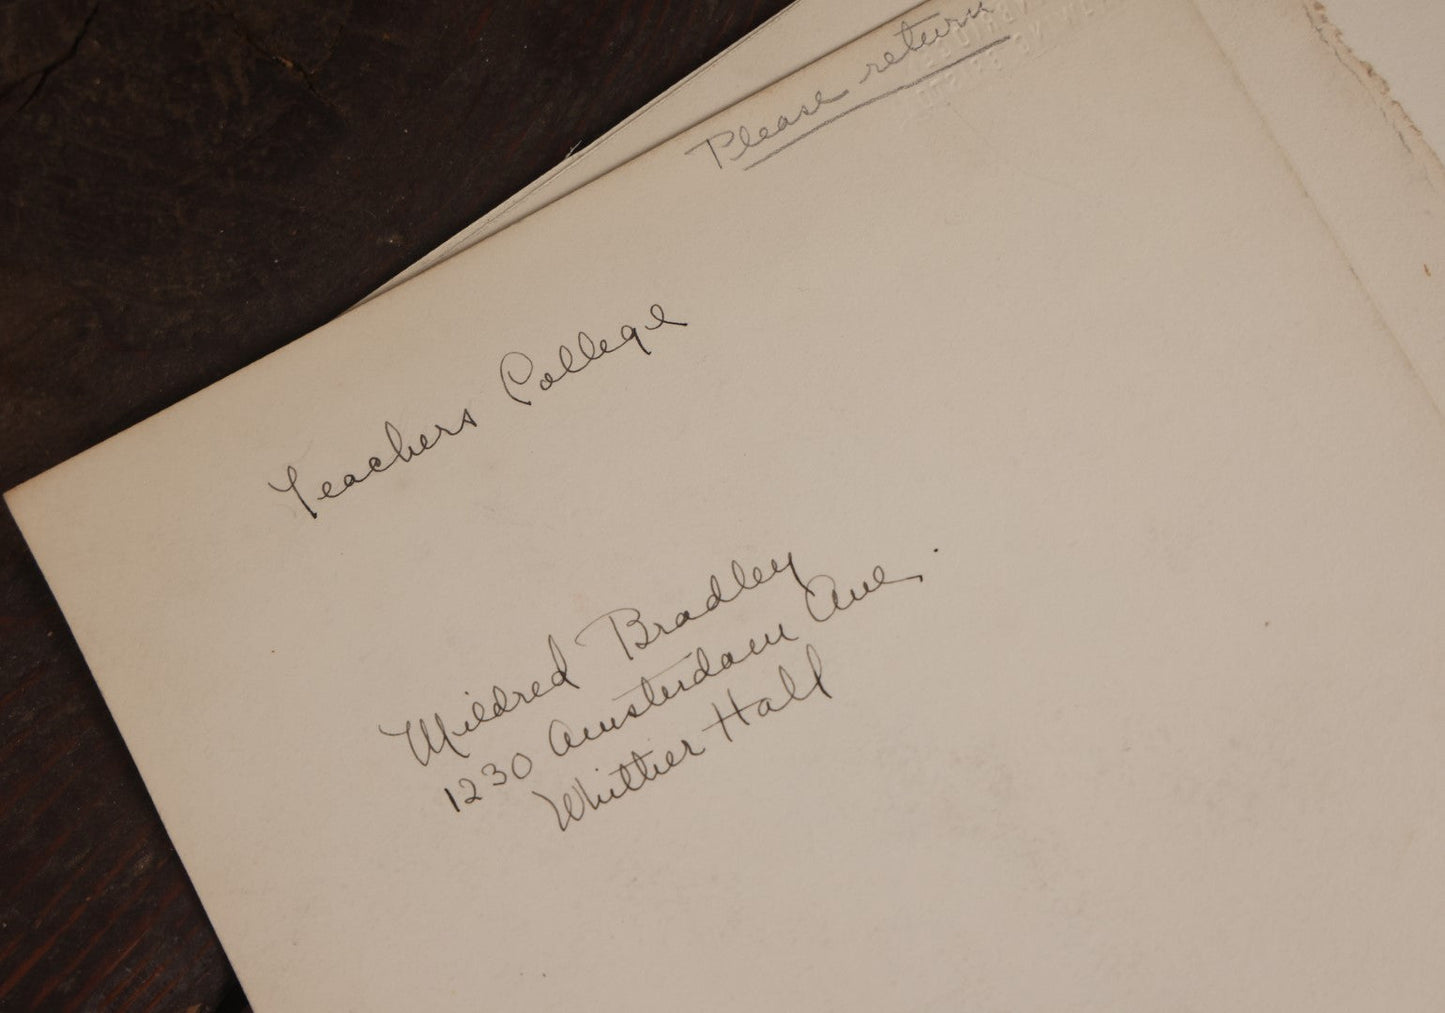 Please return
Teachers College
Mildred Bradley
1230 Amsterdam Ave.
Whittier Hall